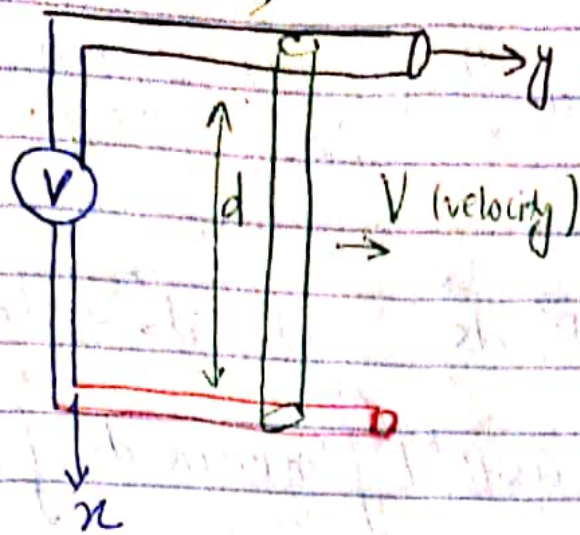 y
V
d
V (velocity)
x